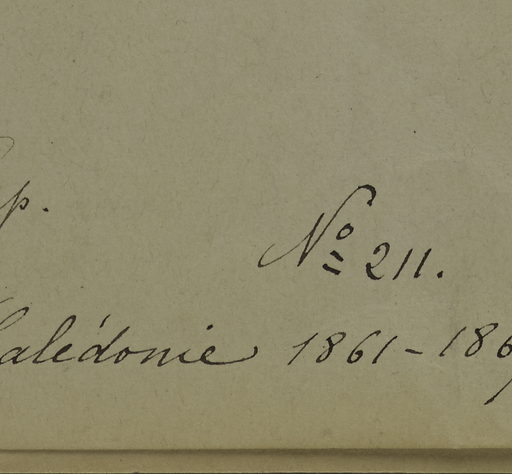 p.
Nº 211.
Calédonie 1861-186